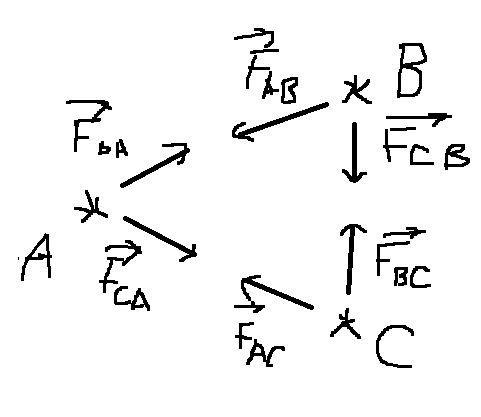 F⃗_AB
B
F⃗_bA
F⃗_CB
A
F⃗_CA
F⃗_BC
F⃗_AC
C